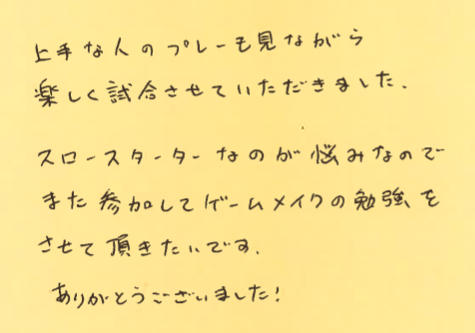 上手な人のプレーも見ながら
楽しく試合させていただきました.
スロースターターなのが悩みなので
また参加してゲームメイクの勉強を
させて頂きたいです.
ありがとうございました!